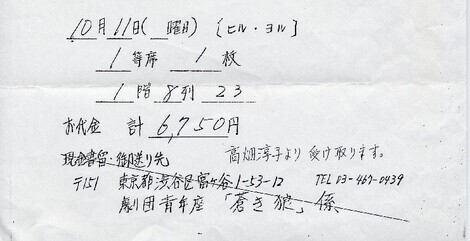 10月11日(　曜日)　[ヒル・ヨル]
1等席　1枚
1階 8列 23
お代金　計 6,750円
高畑淳子より受け取ります。
現金書留・御送り先
〒151 東京都渋谷区富ヶ谷1-53-12 TEL 03-467-0439
劇団青年座「蒼き狼」係